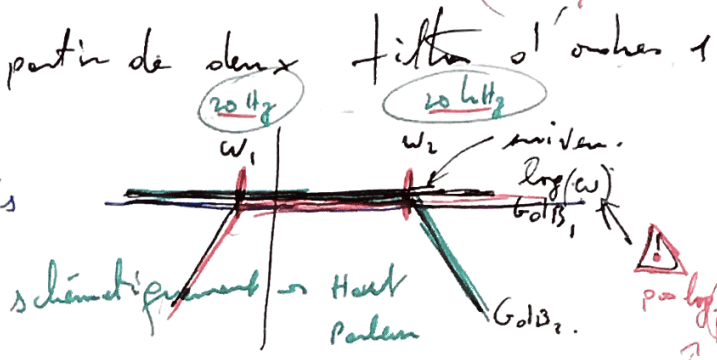 partir de deux filtres d'ordres 1
20 Hz 20 kHz
ω₁ ω₂ suiveur.
log(ω)
GdB₁
schématiquement → Haut
Parleur
GdB₂.
pas log